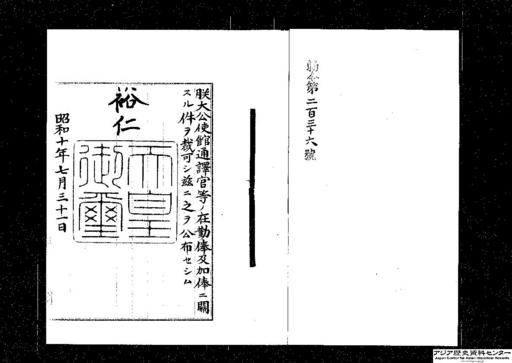 勅令第二百三十六號
朕大公使館通譯官等ノ在勤俸及加俸ニ關
スル件ヲ裁可シ茲ニ之ヲ公布セシム
裕仁
天皇御璽
昭和十年七月三十一日
アジア歴史資料センター
Japan Center for Asian Historical Records